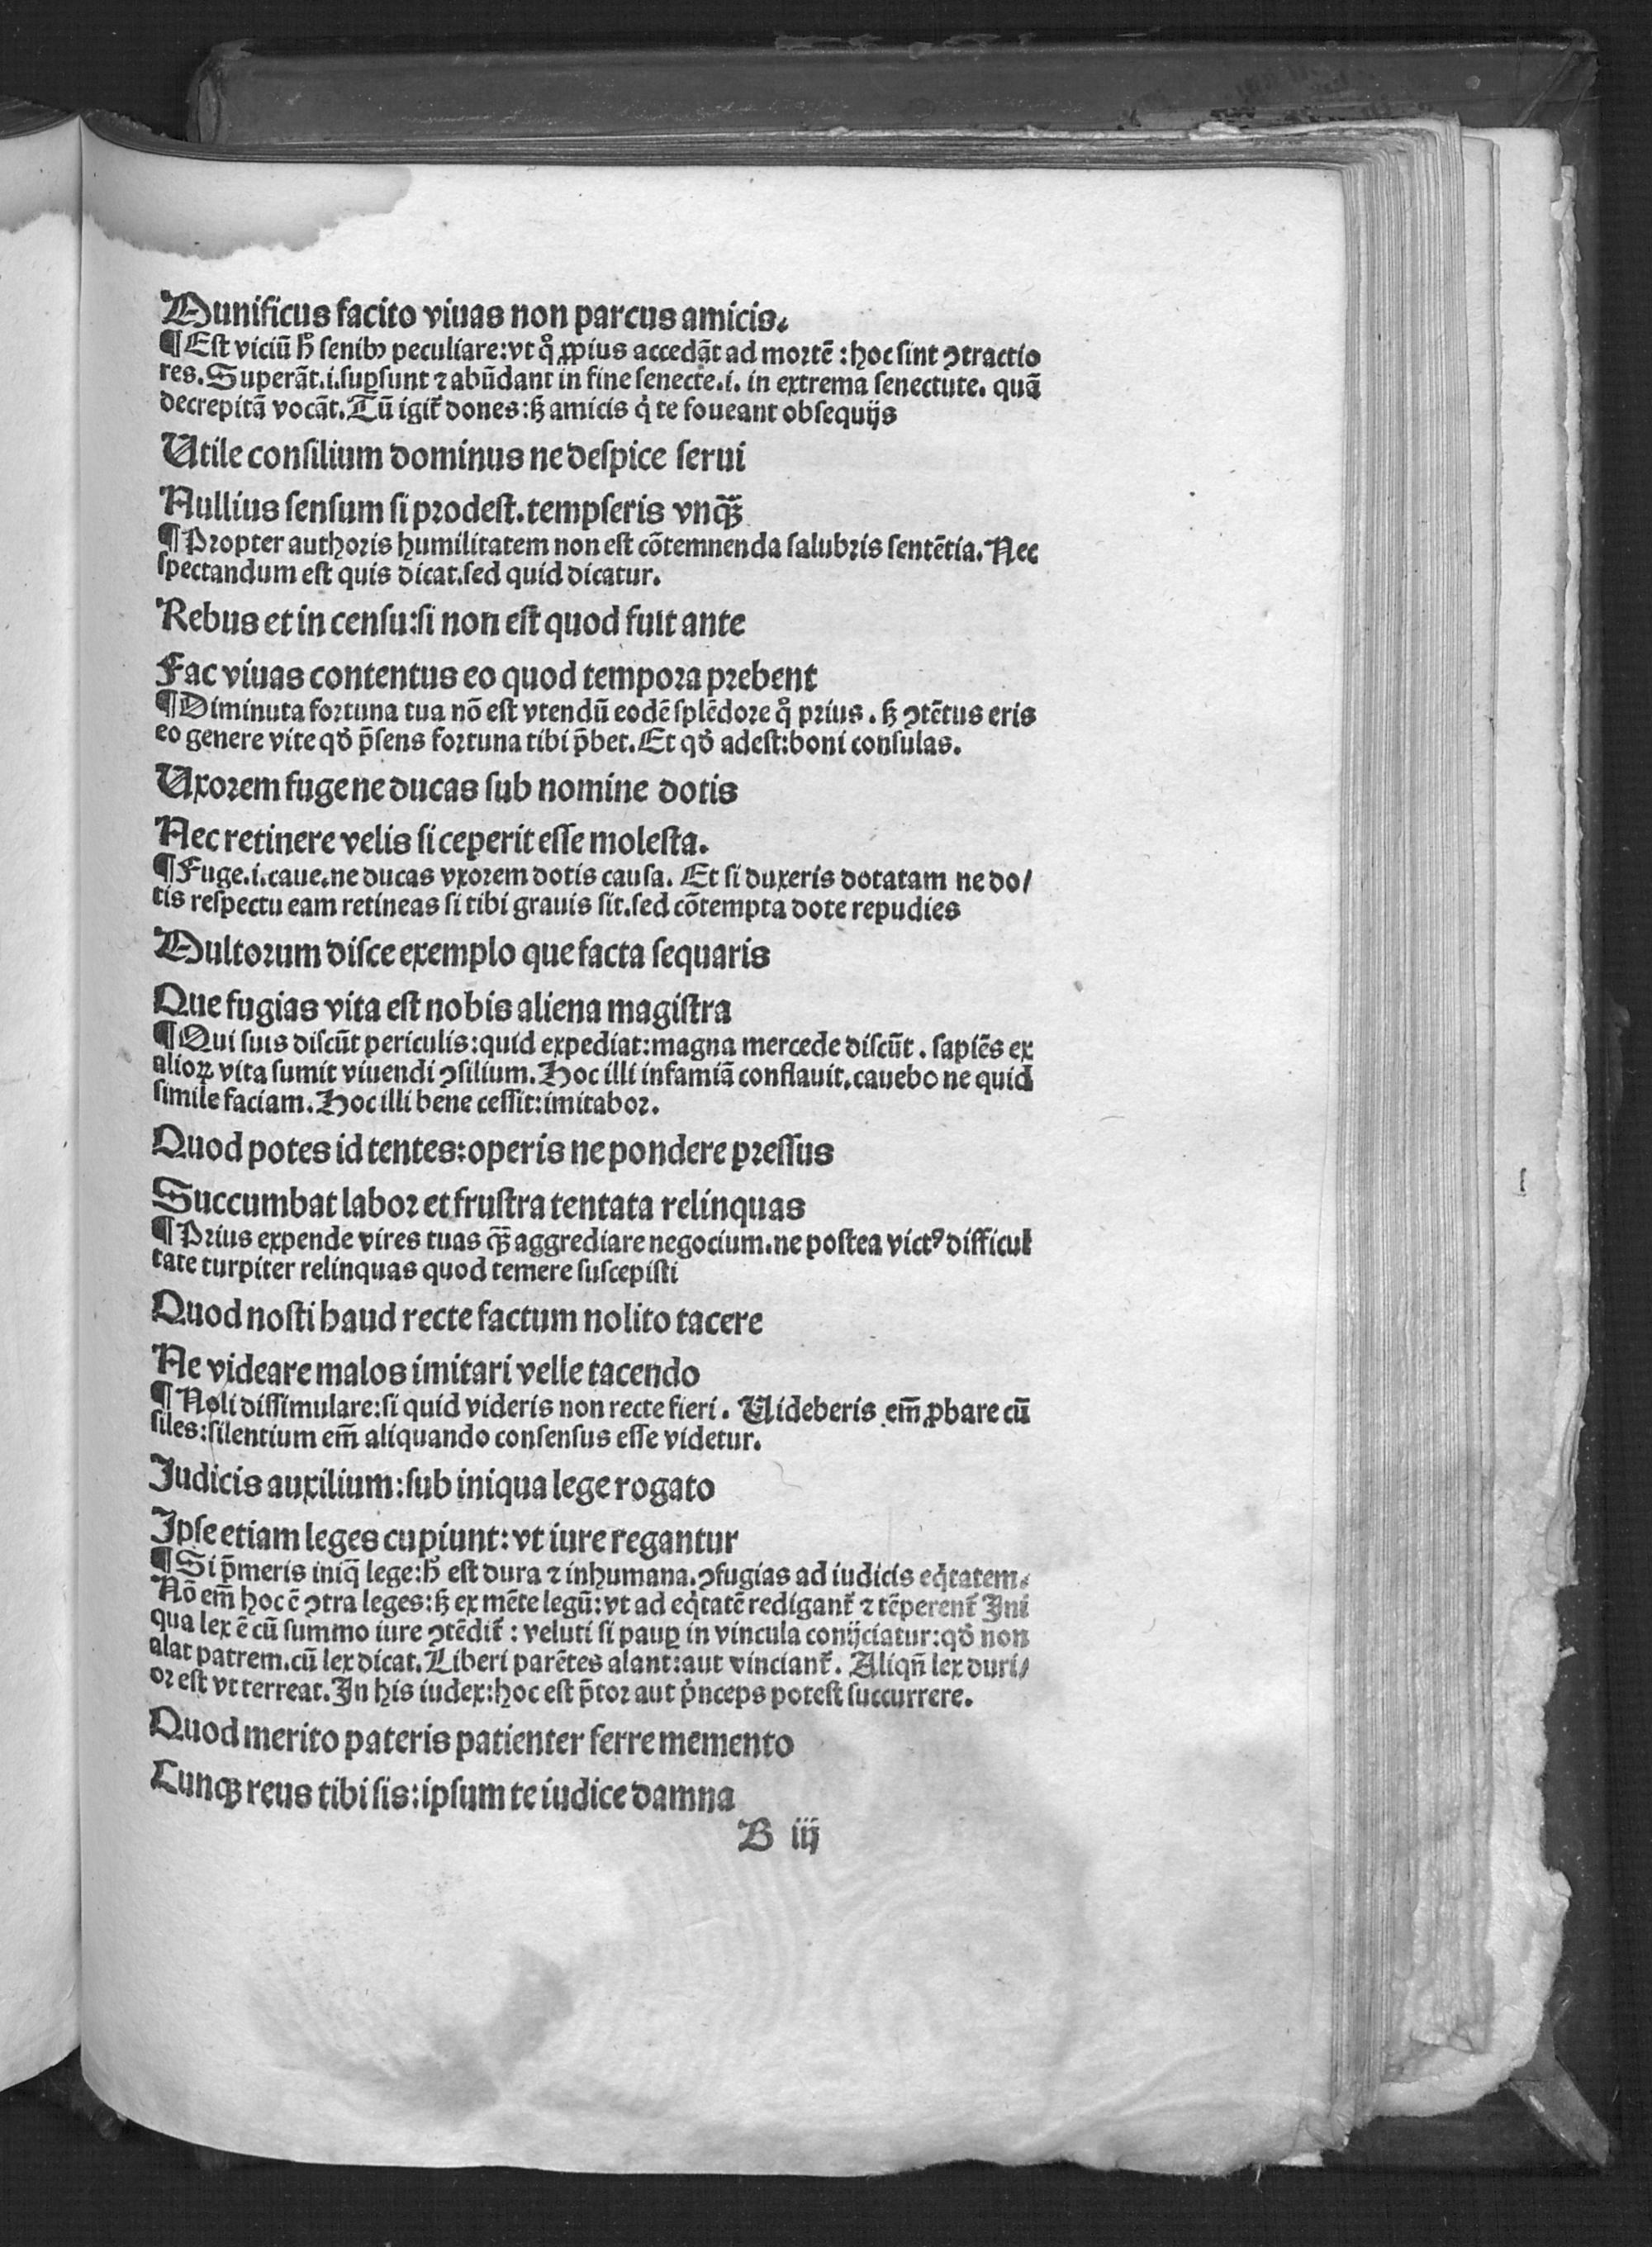 Munificus facito viuas non parcus amicis.
¶Est viciũ hͦ senibꝯ peculiare:vt qͦ ꝓpius accedãt ad mortẽ:hoc sint ꝯtractio
res.Superãt.i.supsunt ⁊ abũdant in fine senecte.i. in extrema senectute. quã
decrepitã vocãt.Tũ igit᷑ dones:sꝫ amicis qͥ te foueant obsequijs
Utile consilium dominus ne despice serui
Nullius sensum si prodest.tempseris vnq̃ꝫ
¶Propter authoris humilitatem non est cõtemnenda salubris sentẽtia.Nec
spectandum est quis dicat.sed quid dicatur.
Rebus et in censu:si non est quod fuit ante
Fac viuas contentus eo quod tempora prebent
¶Diminuta fortuna tua nõ est vtendũ eodẽ splẽdore qͦ prius. sꝫ ꝯtẽtus eris
eo genere vite qđ p̃sens fortuna tibi p̃bet.Et qđ adest:boni consulas.
Uxorem fuge ne ducas sub nomine dotis
Nec retinere velis si ceperit esse molesta.
¶Fuge.i.caue.ne ducas vxorem dotis causa. Et si duxeris dotatam ne do/
tis respectu eam retineas si tibi grauis sit.sed cõtempta dote repudies
Multorum disce exemplo que facta sequaris
Que fugias vita est nobis aliena magistra
¶Qui suis discũt periculis:quid expediat:magna mercede discũt. sapiẽs ex
alioꝝ vita sumit viuendi ꝯsilium.Hoc illi infamiã conflauit.cauebo ne quid
simile faciam.Hoc illi bene cessit:imitabor.
Quod potes id tentes:operis ne pondere pressus
Succumbat labor et frustra tentata relinquas
¶Prius expende vires tuas q̃ꝫ aggrediare negocium.ne postea victꝰ difficul
tate turpiter relinquas quod temere suscepisti
Quod nosti haud recte factum nolito tacere
Ne videare malos imitari velle tacendo
¶Noli dissimulare:si quid videris non recte fieri. Uideberis em̃ ꝓbare cũ
siles:silentium em̃ aliquando consensus esse videtur.
Judicis auxilium:sub iniqua lege rogato
Ipse etiam leges cupiunt:vt iure regantur
¶Si p̃meris iniq̃ lege:hͦ est dura ⁊ inhumana.ꝯfugias ad iudicis eqͥtatem.
Nõ em̃ hoc ẽ ꝯtra leges:sꝫ ex mẽte legũ:vt ad eqͥtatẽ redigant᷑ ⁊ tẽperent᷑ Ini
qua lex ẽ cũ summo iure ꝯtẽdit᷑: veluti si paup̲ in vincula conijciatur:qđ non
alat patrem.cũ lex dicat.Liberi parẽtes alant:aut vinciant᷑. Aliqñ lex duri/
or est vt terreat.In his iudex:hoc est p̃tor aut pͥnceps potest succurrere.
Quod merito pateris patienter ferre memento
Cunqꝫ reus tibi sis:ipsum te iudice damna
B iij